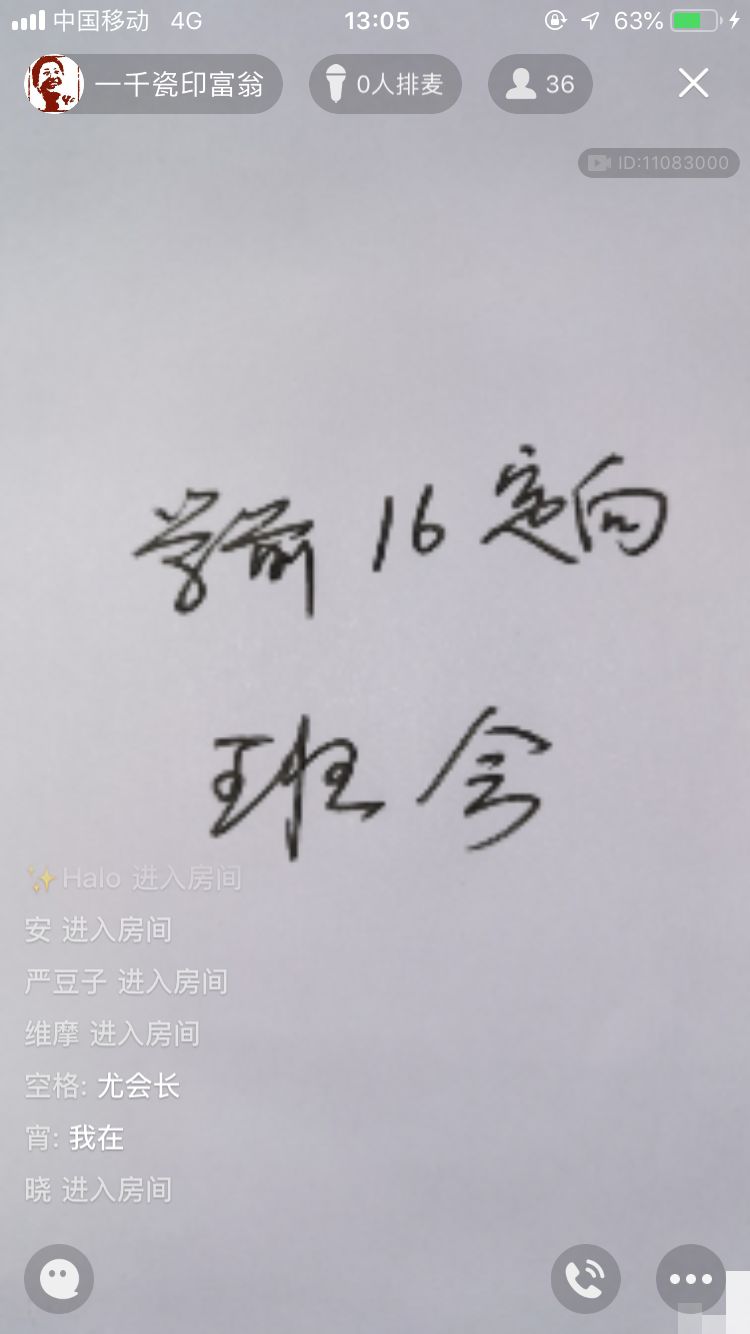 中国移动 4G 13:05 63%
一千瓷印富翁 0人排麦 36
ID:11083000
学前16定向
班会
✨Halo 进入房间
安 进入房间
严豆子 进入房间
维摩 进入房间
空格: 尤会长
宵: 我在
晓 进入房间